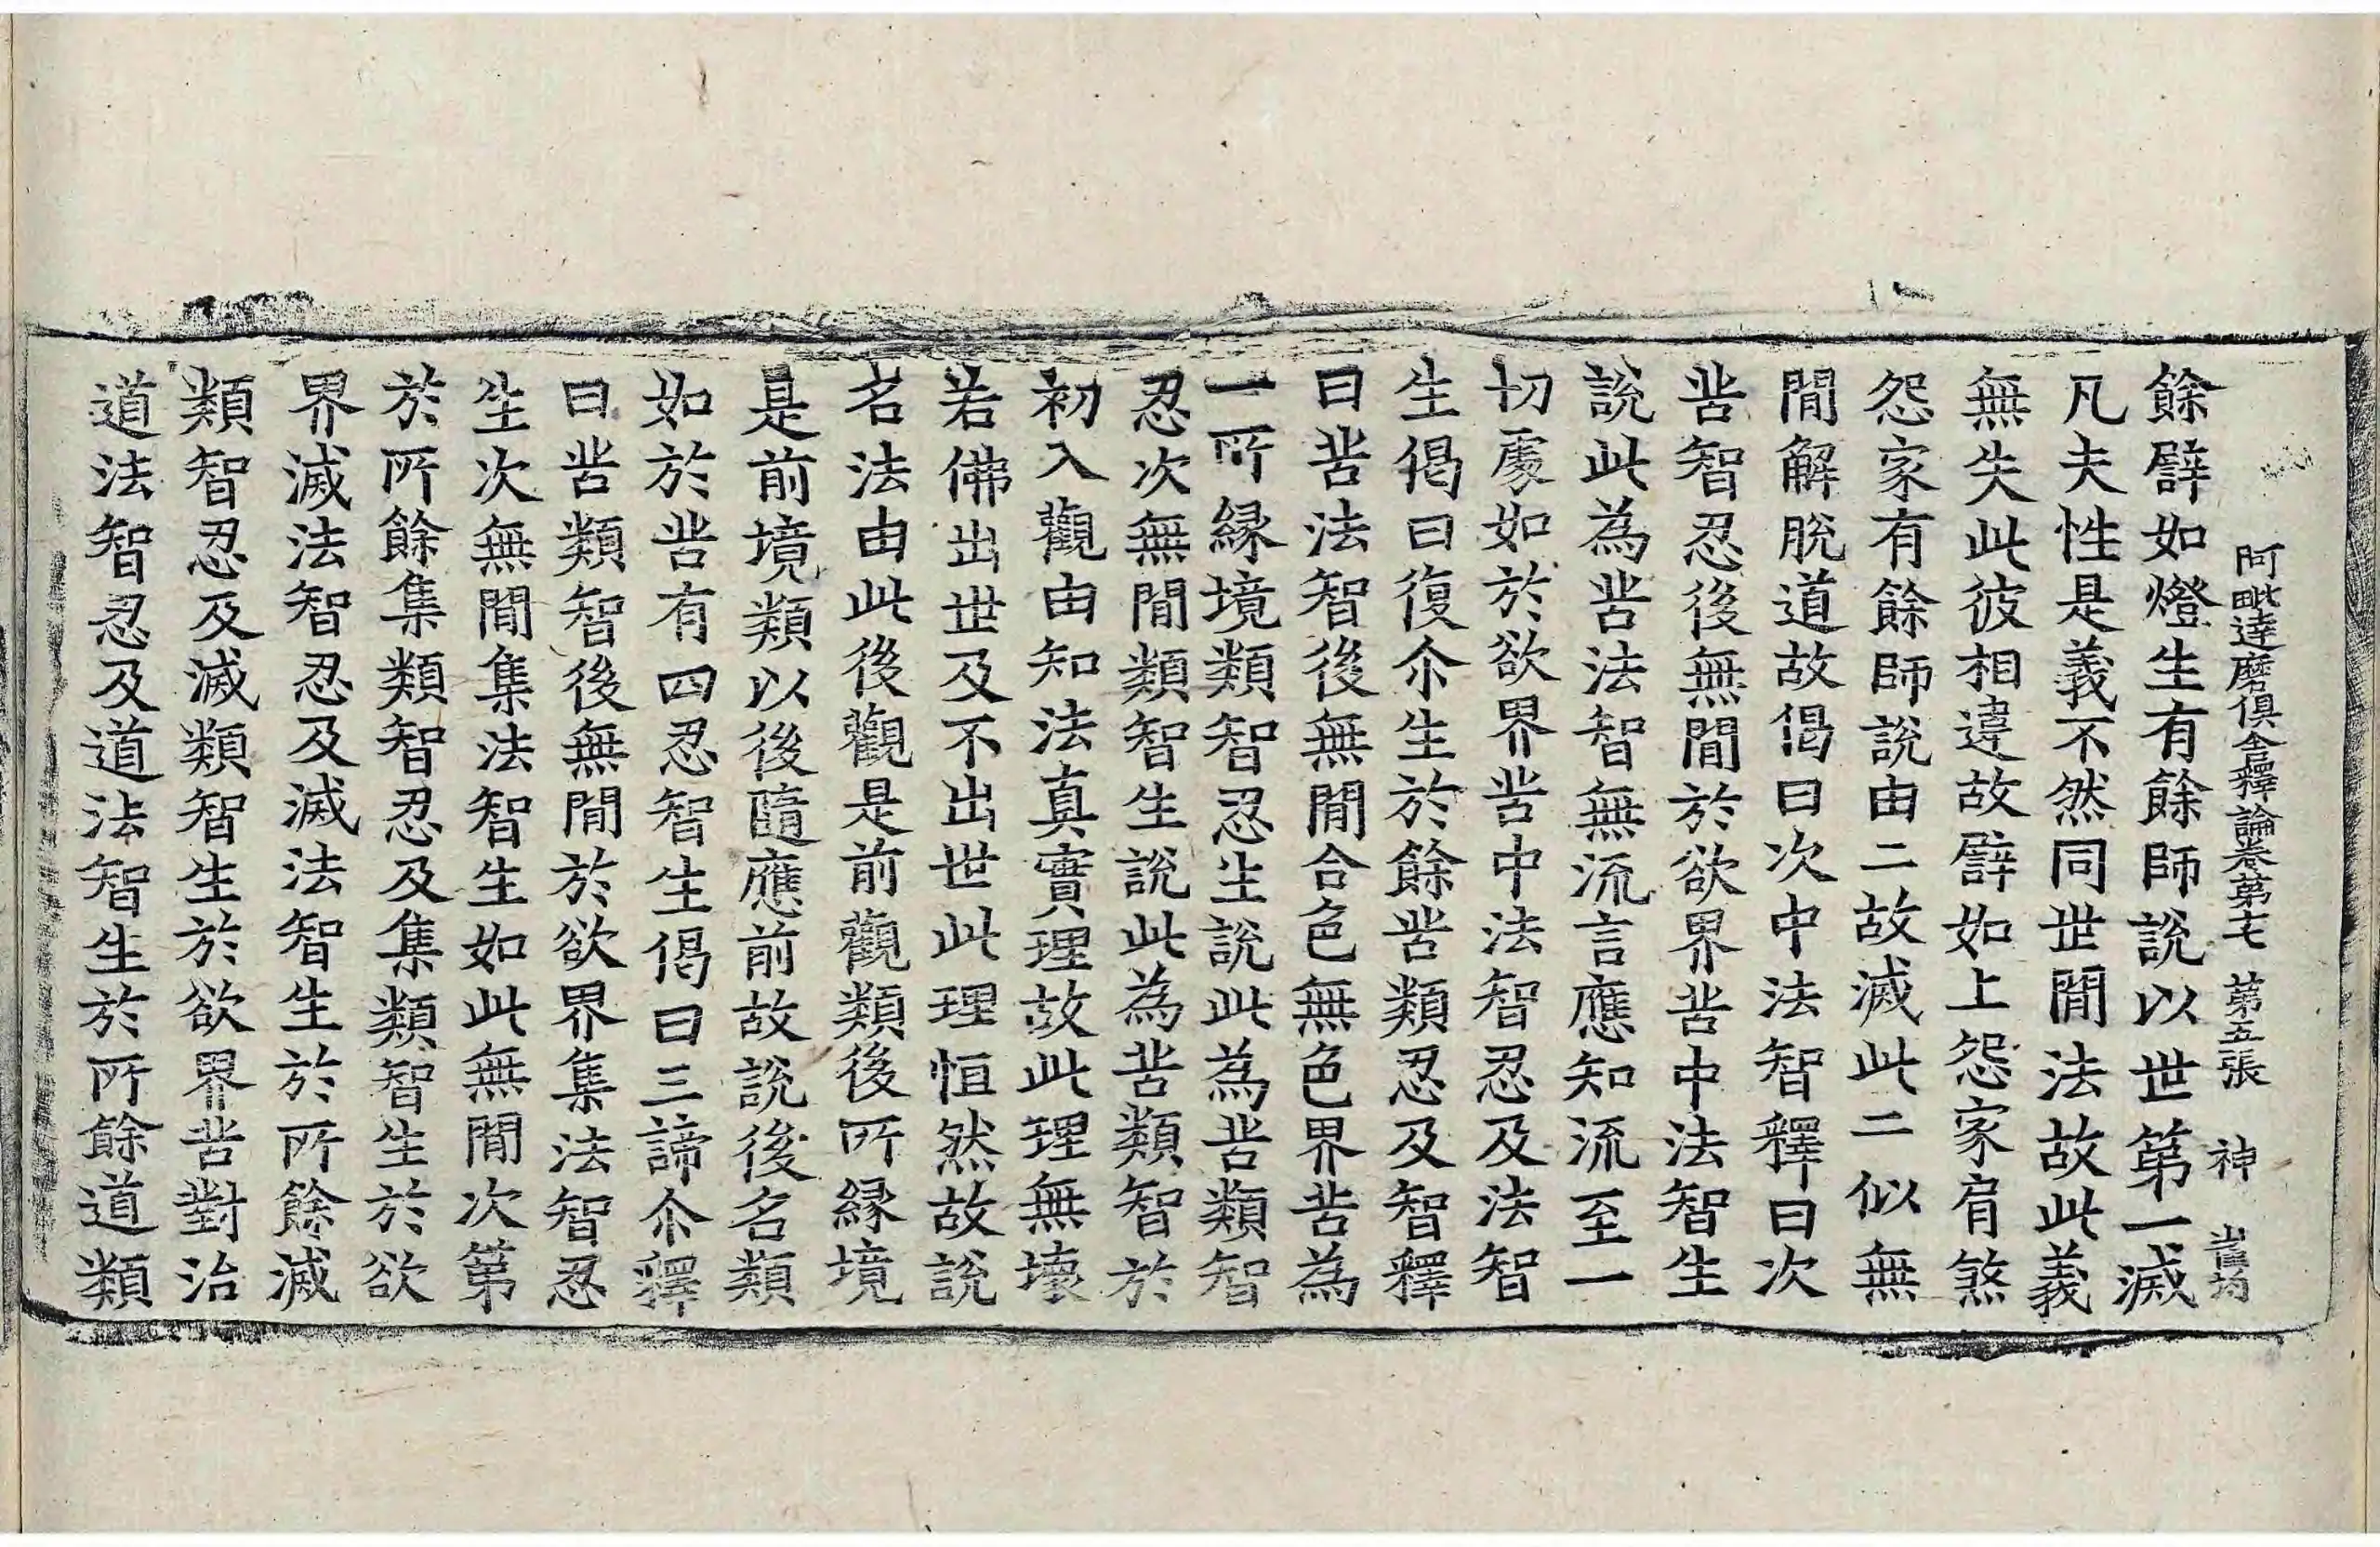 阿毗達磨俱舍釋論卷第七 第五張 神
餘譬如燈生有餘師說以世第一滅
凡夫性是義不然同世間法故此義
無失此彼相違故譬如上怨家肩煞
怨家有餘師說由二故滅此二似無
間解脫道故偈曰次中法智釋曰次
苦智忍後無間於欲界苦中法智生
說此為苦法智無流言應知流至一
切處如於欲界苦中法智忍及法智
生偈曰復尒生於餘苦類忍及智釋
曰苦法智後無間合色無色界苦為
一所緣境類智忍生說此為苦類智
忍次無間類智生說此為苦類智於
初入觀由知法真實理故此理無壞
若佛出世及不出世此理恒然故說
名法由此後觀是前觀類後所緣境
是前境類以後隨應前故說後名類
如於苦有四忍智生偈曰三諦尒釋
曰苦類智後無間於欲界集法智忍
生次無間集法智生如此無間次第
於所餘集類智忍及集類智生於欲
界滅法智忍及滅法智生於所餘滅
類智忍及滅類智生於欲界苦對治
道法智忍及道法智生於所餘道類